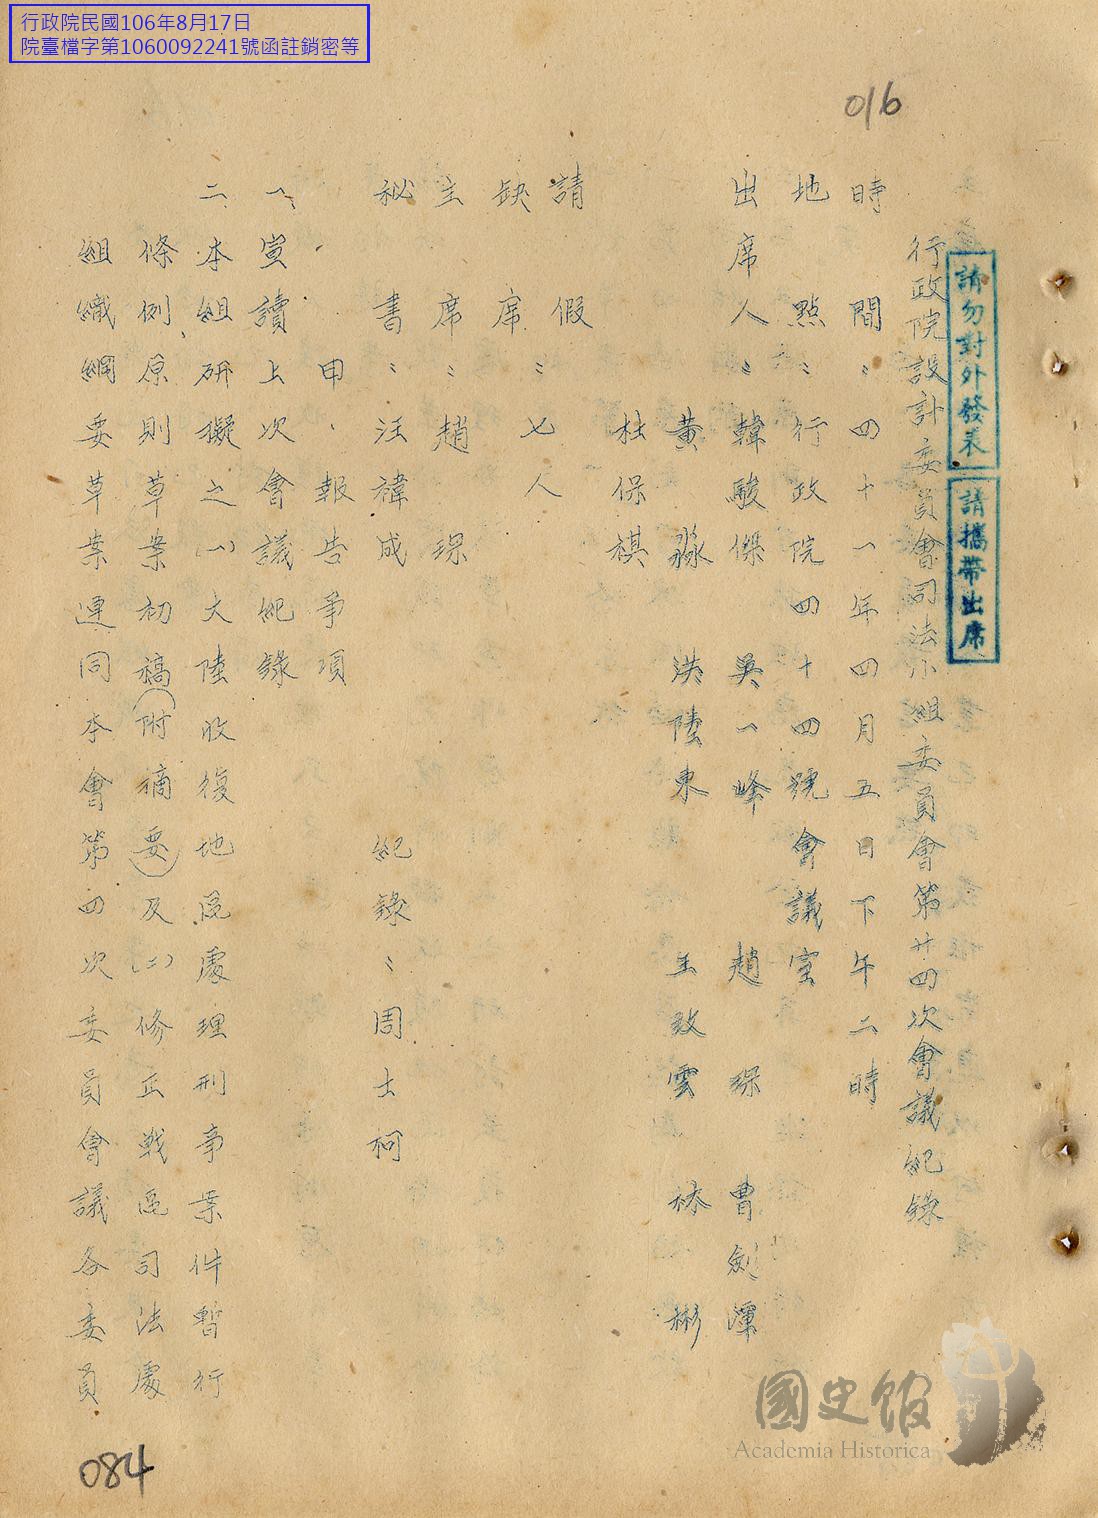 行政院民國106年8月17日
院臺檔字第1060092241號函註銷密等
016
請勿對外發表
請攜帶出席
行政院設計委員會司法小組委員會第廿四次會議紀錄
時間：四十一年四月五日下午二時
地點：行政院四十四號會議室
出席人：韓駿傑 吳一峰 趙琛 曹劍潭
黃淼 洪陸東 王致雲 林彬
杜保祺
請假：七人
缺席
主席：趙琛
秘書：汪禕成 紀錄：周士柯
甲、報告事項
一、宣讀上次會議紀錄
二、本組研擬之(一)大陸收復地區處理刑事案件暫行
條例原則草案初稿(附摘要)及(二)修正戰區司法處
組織綱要草案連同本會第四次委員會議各委員
國史館
Academia Historica
084